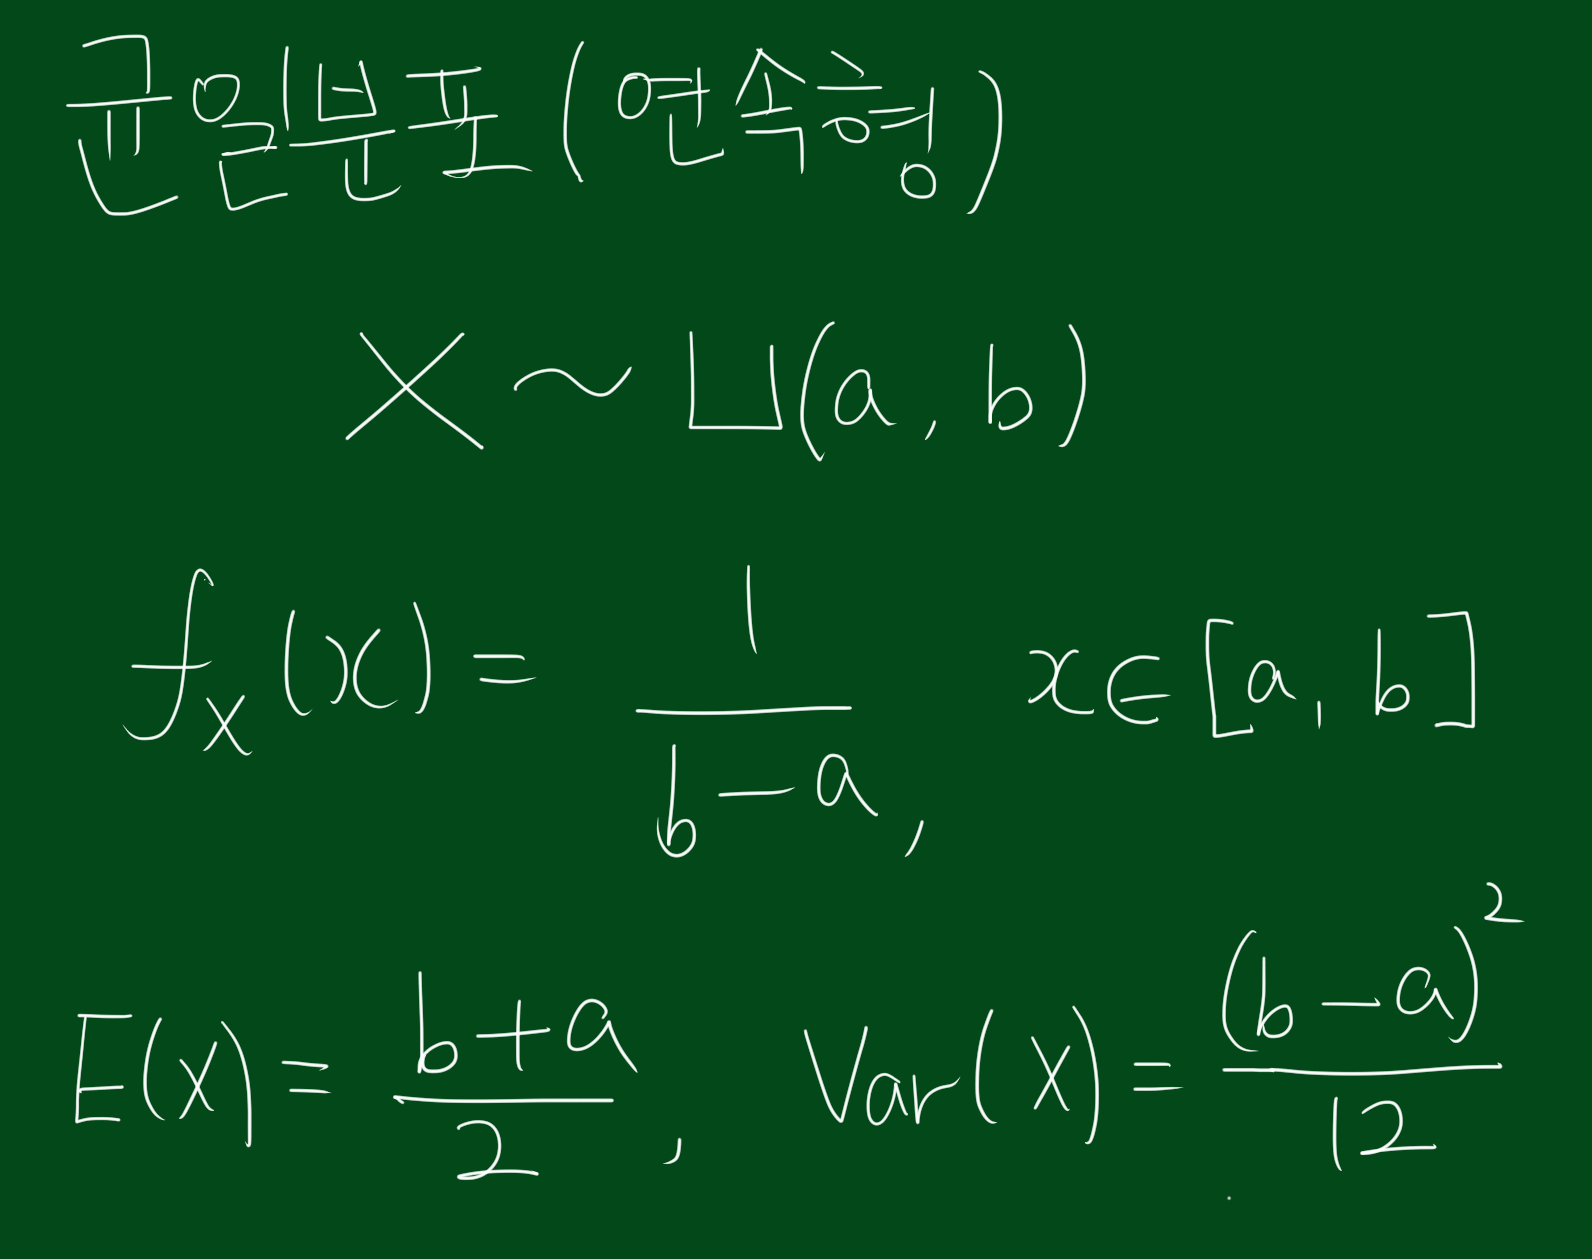 균일분포(연속형)
X ~ U(a, b)
f_X(x) = 1/(b-a), x∈[a, b]
E(X) = (b+a)/2, Var(X) = (b-a)²/12